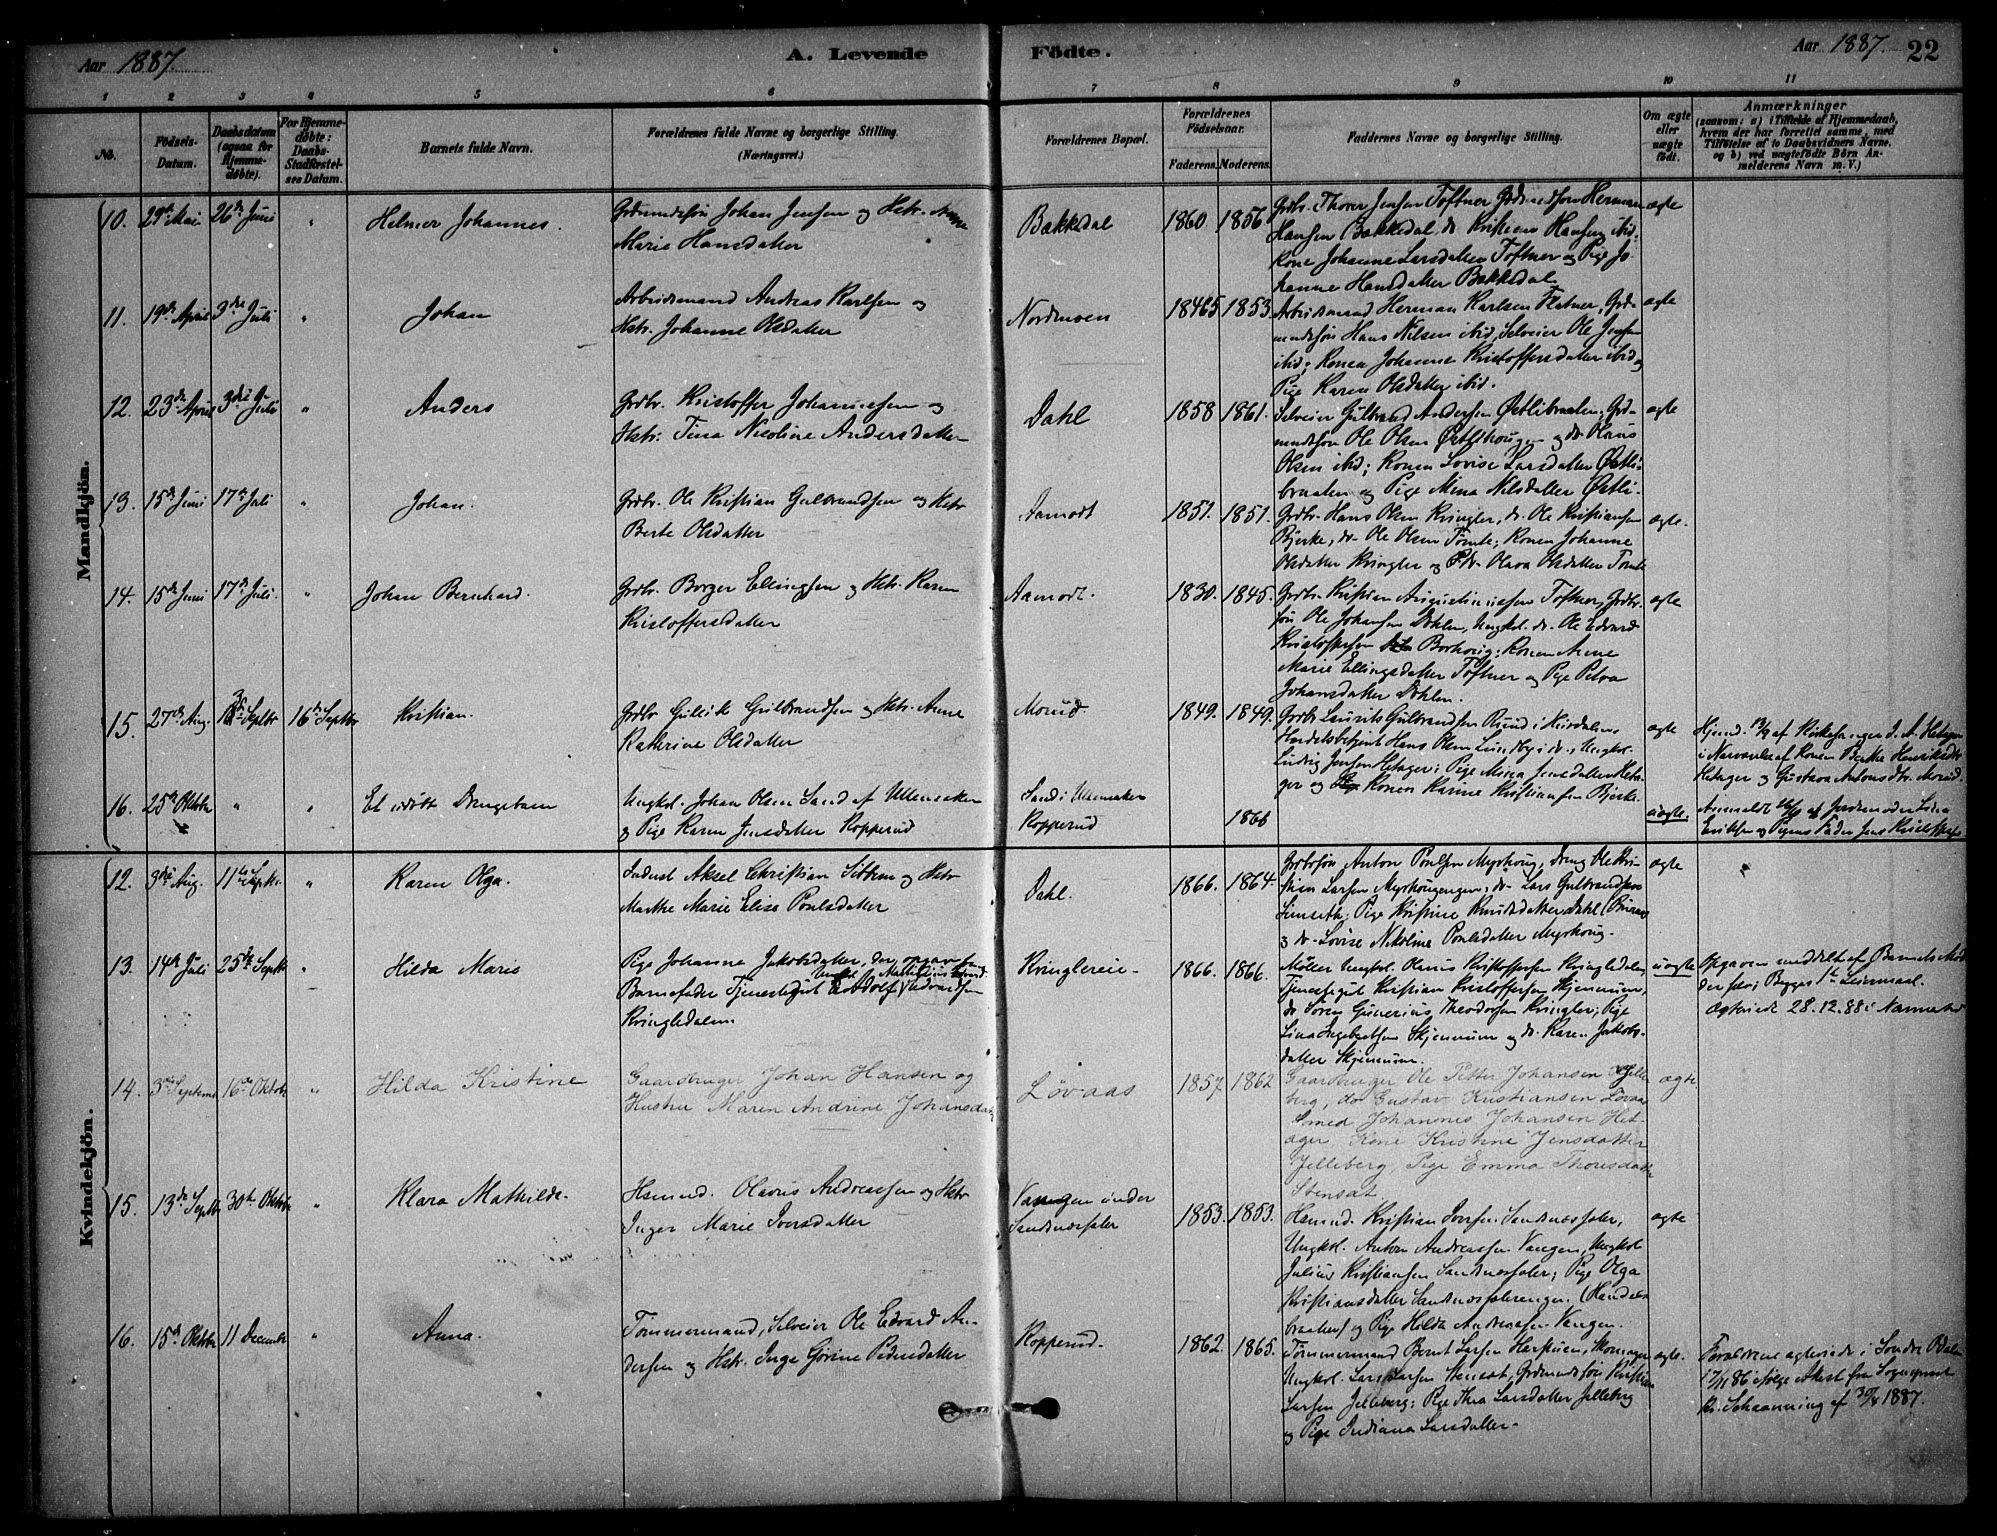 Aar 1887. A. Levende
Födte. Aar 1887. 22
1 2 3 4 5 6 7 8 9 10 11
No.
Födsels-Datum.
Daabsdatum (ogsaa for Hjemme-døbte).
For Hjemme-døbte: Daabs-Stadfæstel-ses Datum.
Barnets fulde Navn.
Forældrenes fulde Navne og borgerlige Stilling. (Næringsvei.)
Forældrenes Bopæl.
Forældrenes Födselsaar.
Faderens. Moderens.
Faddernes Navne og borgerlige Stilling.
Om ægte eller uægte født.
Anmærkninger
(saasom: a) i Tilfælde af Hjemmedaab,
hvem der har forrettet samme, med
Tilföielse af to Daabsvidners Navne,
og b) ved uægtefødte Börn An-
melderens Navn m. V.)
Mandkjön.
10. 29de Mai 26de Juni " Helmer Johannes. Grdmandssøn Johan Jensen og Hstr. Anne
Marie Hansdatter
Bækkedal 1860 1856
Grdbr. Thorer Jensen Toftner Grdmdssøn Herman ægte
Hansen Bækkedal, do Kristian Hansen ibid;
Kone Johanne Larsdatter Toftner og Pige Jo-
hanne Hansdatter Bækkedal
11. 19de April 3die Juli " Johan Arbeidsmand Andreas Karlsen og
Hstr. Johanne Olsdatter
Nordmoen 18465 1853
Arbeidsmand Herman Karlsen Flatner, Grd- ægte
mandssøn Hans Nilsen ibid, Selveier Ole Jensen
ibid; Konen Johanne Kristoffersdatter ibid og
Pige Karen Olsdatter ibid.
12. 23de April 3die Juli " Anders Grdbr. Kristoffer Johannesen og
Hstr. Tina Nicoline Andersdatter
Dahl 1858 1861.
Selveier Gulbrand Andersen Østlibraaten, Grd- ægte
mandssøn Ole Olsen Østlihougen og do Olaus
Olsen ibid; Konen Lovise Larsdatter Østli-
braaten og Pige Mina Nilsdatter Østli-
13. 15de Juni 17de Juli " Johan. Grdbr. Ole Kristian Gulbrandsen og Hstr
Berte Olsdatter
Aamodt 1851. 1851.
Grdbr. Hans Olsen Kringler, do. Ole Kristiansen ægte.
Bjerke, do Ole Olsen Tømte; Konen Johanne
Olsdatter Kringler og do Olava Olsdatter Tømte
14. 15de Juni 17de Juli. " Johan Bernhard. Grdbr. Borger Ellingsen og Hstr. Karen
Kristoffersdatter
Aamodt. 1830. 1845.
Grdbr. Kristian Augustinusen Toftner, Grdbr. ægte
søn Ole Johansen Dæhlen, Ungkl. do. Ole Edvard
Kristoffersen Borhoug; Konen Anne
Marie Ellingsdatter Toftner og Pige Petra
Johansdatter Dæhlen.
15. 27de Aug. Septbr 16de Septbr Kristian. Grdbr Gullik Gulbrandsen og Hstr. Anne
Kathrine Olsdatter
Morud. 1849. 1849.
Grdbr Laurits Gulbrandsen Ruud i Hurdalen, ægte
Handelsbetjent Hans Olsen Lundby i do., Ungkl.
Ludvig Jensen Hetager; Pige Mina Jensdatter Heta-
ger og Konen Karine Kristiansen Bjerke.
Hjemd. 13/9 af Kirkesanger J. A. Hetager
i Nærværelse af Konen Berthe Henriksdtr
Hetager og Gustava Antonsdtr. Morud.
16. 25de Oktbr " " Et udøbt Drengebarn Ungkl. Johan Olsen Sand af Ullensaker
og Pige Karen Jensdatter Kopperud
Sand i Ullensaker
Kopperud 1866 uægte.
Anmeldt af Jordemoder Lina
Eriksen og Pigens Fader Jens Kristoffersen
Kvindekjön.
12. 3die Aug. 11te Septbr. " Karen Olga. Indust Aksel Christian Sittem og Hstr
Marthe Marie Elise Poulsdatter
Dahl. 1866. 1864.
Grdbrsøn Anton Poulsen Myrhoug, Dreng Ole Kri- ægte
stian Larsen Myrhougengen, do Lars Gulbrandsen
Linseth; Pige Kristine Knudsdatter Dahl
og do Lovise Nikoline Poulsdatter Myrhoug.
13. 14de Juli 25de Septbr " Hilda Marie Pige Johanna Jakobsdatter, der opgav som
Barnefader Tjenestegut Adolf Edvardsen
Kringledalen.
Kringlereie 1866. 1866.
Møller Ungkl. Olaus Kristoffersen Kringledalen uægte
Tjenestegut Kristian Kristoffersen Skjennum,
do Søren Gunerius Theodorsen Kringler; Pige
Lina Ingebretsen Skjennum og do Karen Jakobs-
datter Skjennum.
Opgaven meddelt af Barnets Mo-
der selv; Begges 1te Leiermaal.
Ægteviede 28.12.88 i Nannestad
14. 3die Septembr 16de Oktober " Hilda Kristine Gaardbruger Johan Hansen og
Hustru Maren Andrine Johansdatr
Løvaas 1857 1862
Gaardbruger Ole Petter Johansen Jelle- ægte
berg, do Gustav Kristiansen Løvaas
Smed Johannes Johansen Het-
ager, Kone Kristine Jensdatter
Jelleberg, Pige Emma Thoresdatter
Stensat.
15. 13de Septbr 30te Oktober " Klara Mathilde. Hsmnd. Olavus Andreassen og Hstr
Inger Marie Iversdatter
Vangen under
Sandsnæssæter 1853. 1853.
Hsmnd. Kristian Iversen Sandsnæssæter, ægte
Ungkl. Anton Andreassen Vangen, Ungkl
Julius Kristiansen Sandsnæssæter; Pige Olga
Kristiansdatter Sandsnæssæterengen
braaten) og Pige Hilda Andreasen Vangen.
16. 15de Oktbr 11 December " Anna. Tømmermand, Selveier Ole Edvard An-
dersen og Hstr. Inge Gorine Pedersdatter
Kopperud. 1862. 1865.
Tømmermand Bernt Larsen ægte.
Ungkl. Lars Larsen Stensat, Grdmandssøn Kristian
Larsen Jelleberg; Pige Thea Larsdatter Jelleberg
og Pige Indiana Larsdatter.
Forældrene ægteviede i Søndre Odalen
17/11 86 ifølge Attest fra Sogneprest
Kr. Schaanning af 30/8 1887.